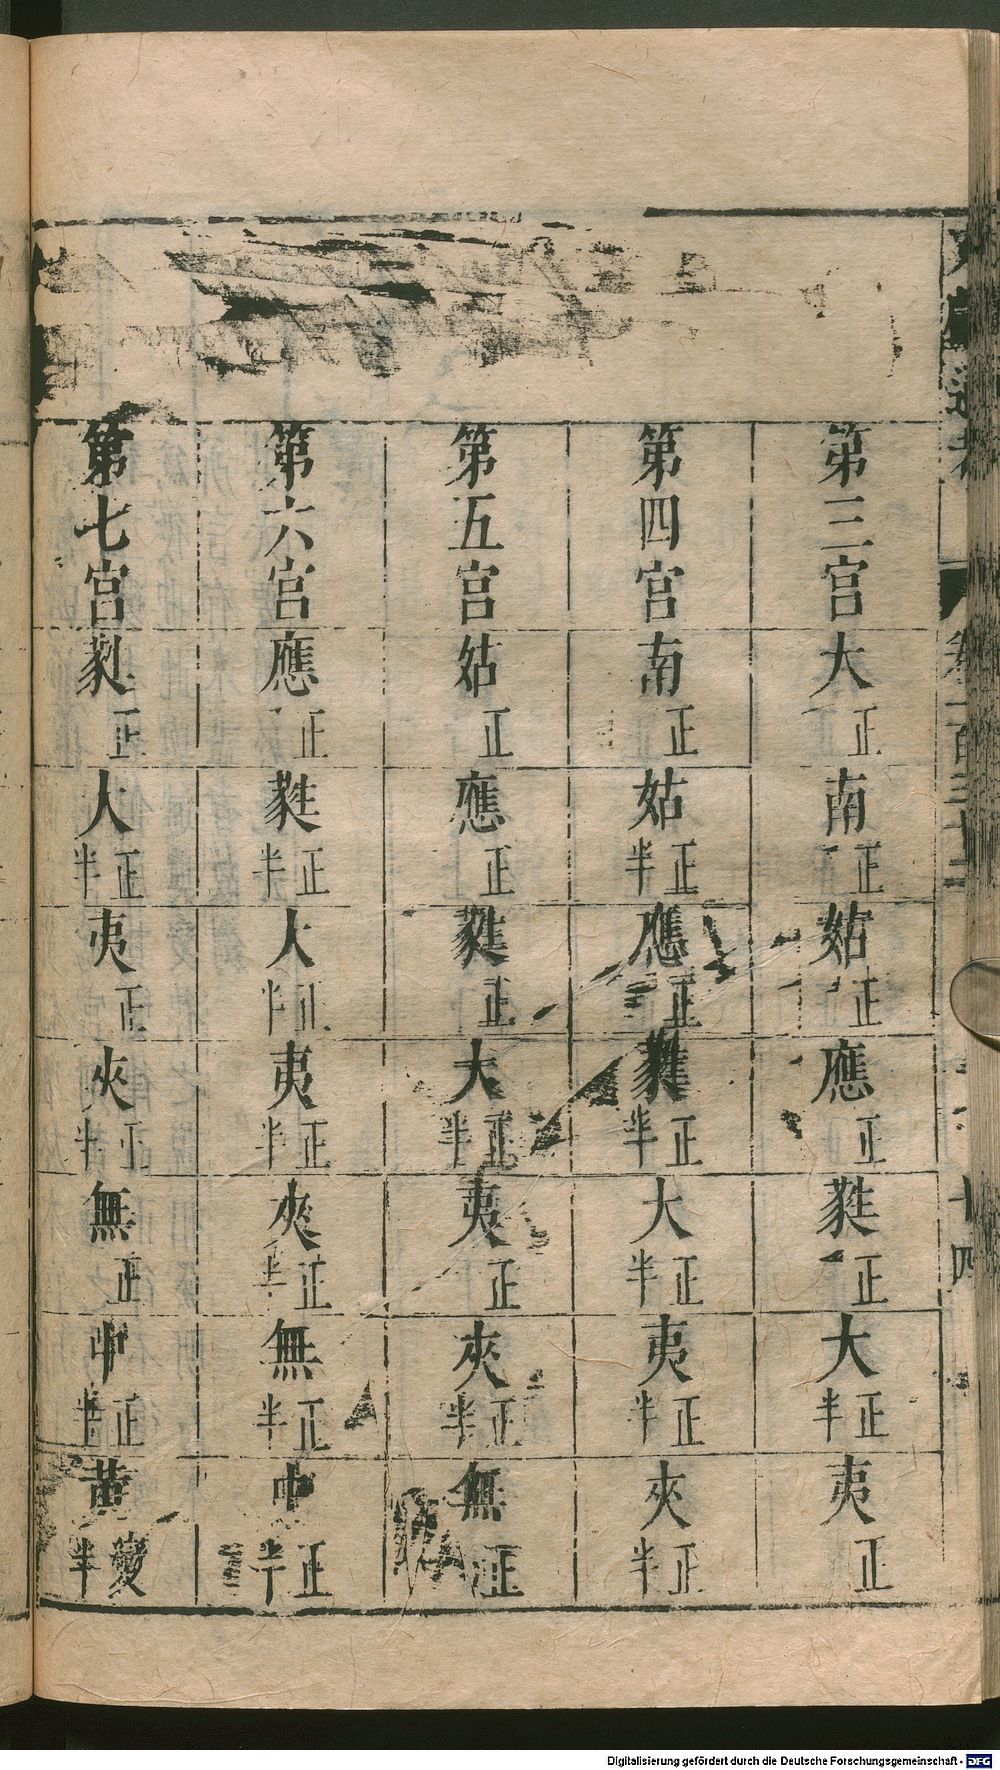 第三宮 大正 南正 姑正 應正 蕤正 大正半 夷正
第四宮 南正 姑正半 應正 蕤正半 大正半 夷正半 夾正半
第五宮 姑正 應正 蕤正 大正半 夷正 夾正半 無正
第六宮 應正 蕤正半 大正半 夷正半 夾正半 無正半 中正半
第七宮 蕤正 大正半 夷正 夾正半 無正 中正半 黃變半
十四
Digitalisierung gefördert durch die Deutsche Forschungsgemeinschaft - DFG